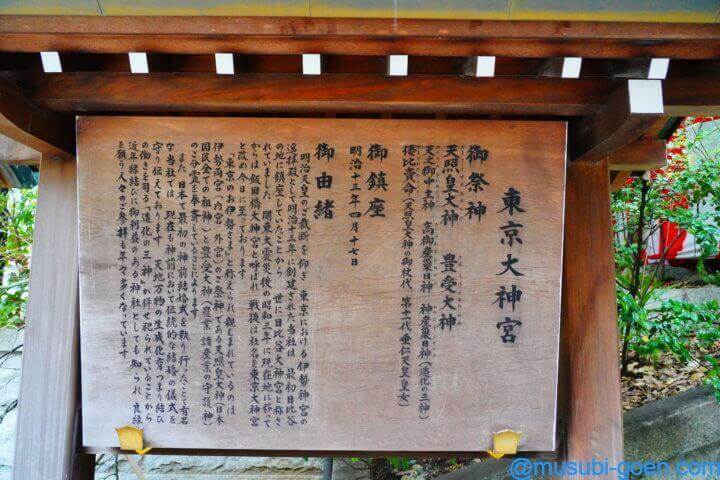 東京大神宮
御祭神
天照皇大神　豊受大神
天之御中主神　高御産巣日神　神産巣日神（造化の三神）
倭比賣命（天照皇大神の御杖代　第十一代　垂仁天皇皇女）
御鎮座
明治十三年四月十七日
御由緒
明治天皇のご裁断を仰ぎ　東京における伊勢神宮の
遥拝殿として明治十三年に創建された当社は　最初日比谷
の地に鎮座していたことから　世に日比谷大神宮と称さ
れていました　関東大震災後の昭和三年に現在地に移って
からは飯田橋大神宮と呼ばれ　戦後は社名を東京大神宮
と改め今日に至っております
「東京のお伊勢さま」と称えられ親しまれているのは
伊勢両宮（内宮・外宮）のご祭神である天照皇大神（日本
国民全ての祖神）と豊受大神（農業　諸産業の守護神）
のご分霊を奉斎していることによります
また　日本で最初の神前結婚式を執り行ったことで有名
な当社では　現在も神前において伝統的な結婚の儀式を
守り伝えております　天地万物の生成化育つまり結び
の働きを司る「造化の三神」が併せ祀られていることから
近年縁結びに御利益のある神社としても知られ　良縁
を願う人々のご参拝も年々多くなっています
@musubi-goen.com